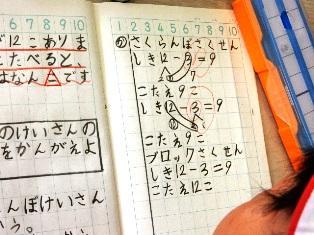 5 6 7 8 9 10
が12こあります
たべると、
はなん こです
のけいさんの
をかんがえよ
んぼけいさん
う。
1 2 3 4 5 6 7 8 9 10
②さくらんぼさくせん
しき12-3=9
7
こたえ9こ
しき12-3=9
こたえ9こ
ブロックさくせん
しき12-3=9
こたえ12こ